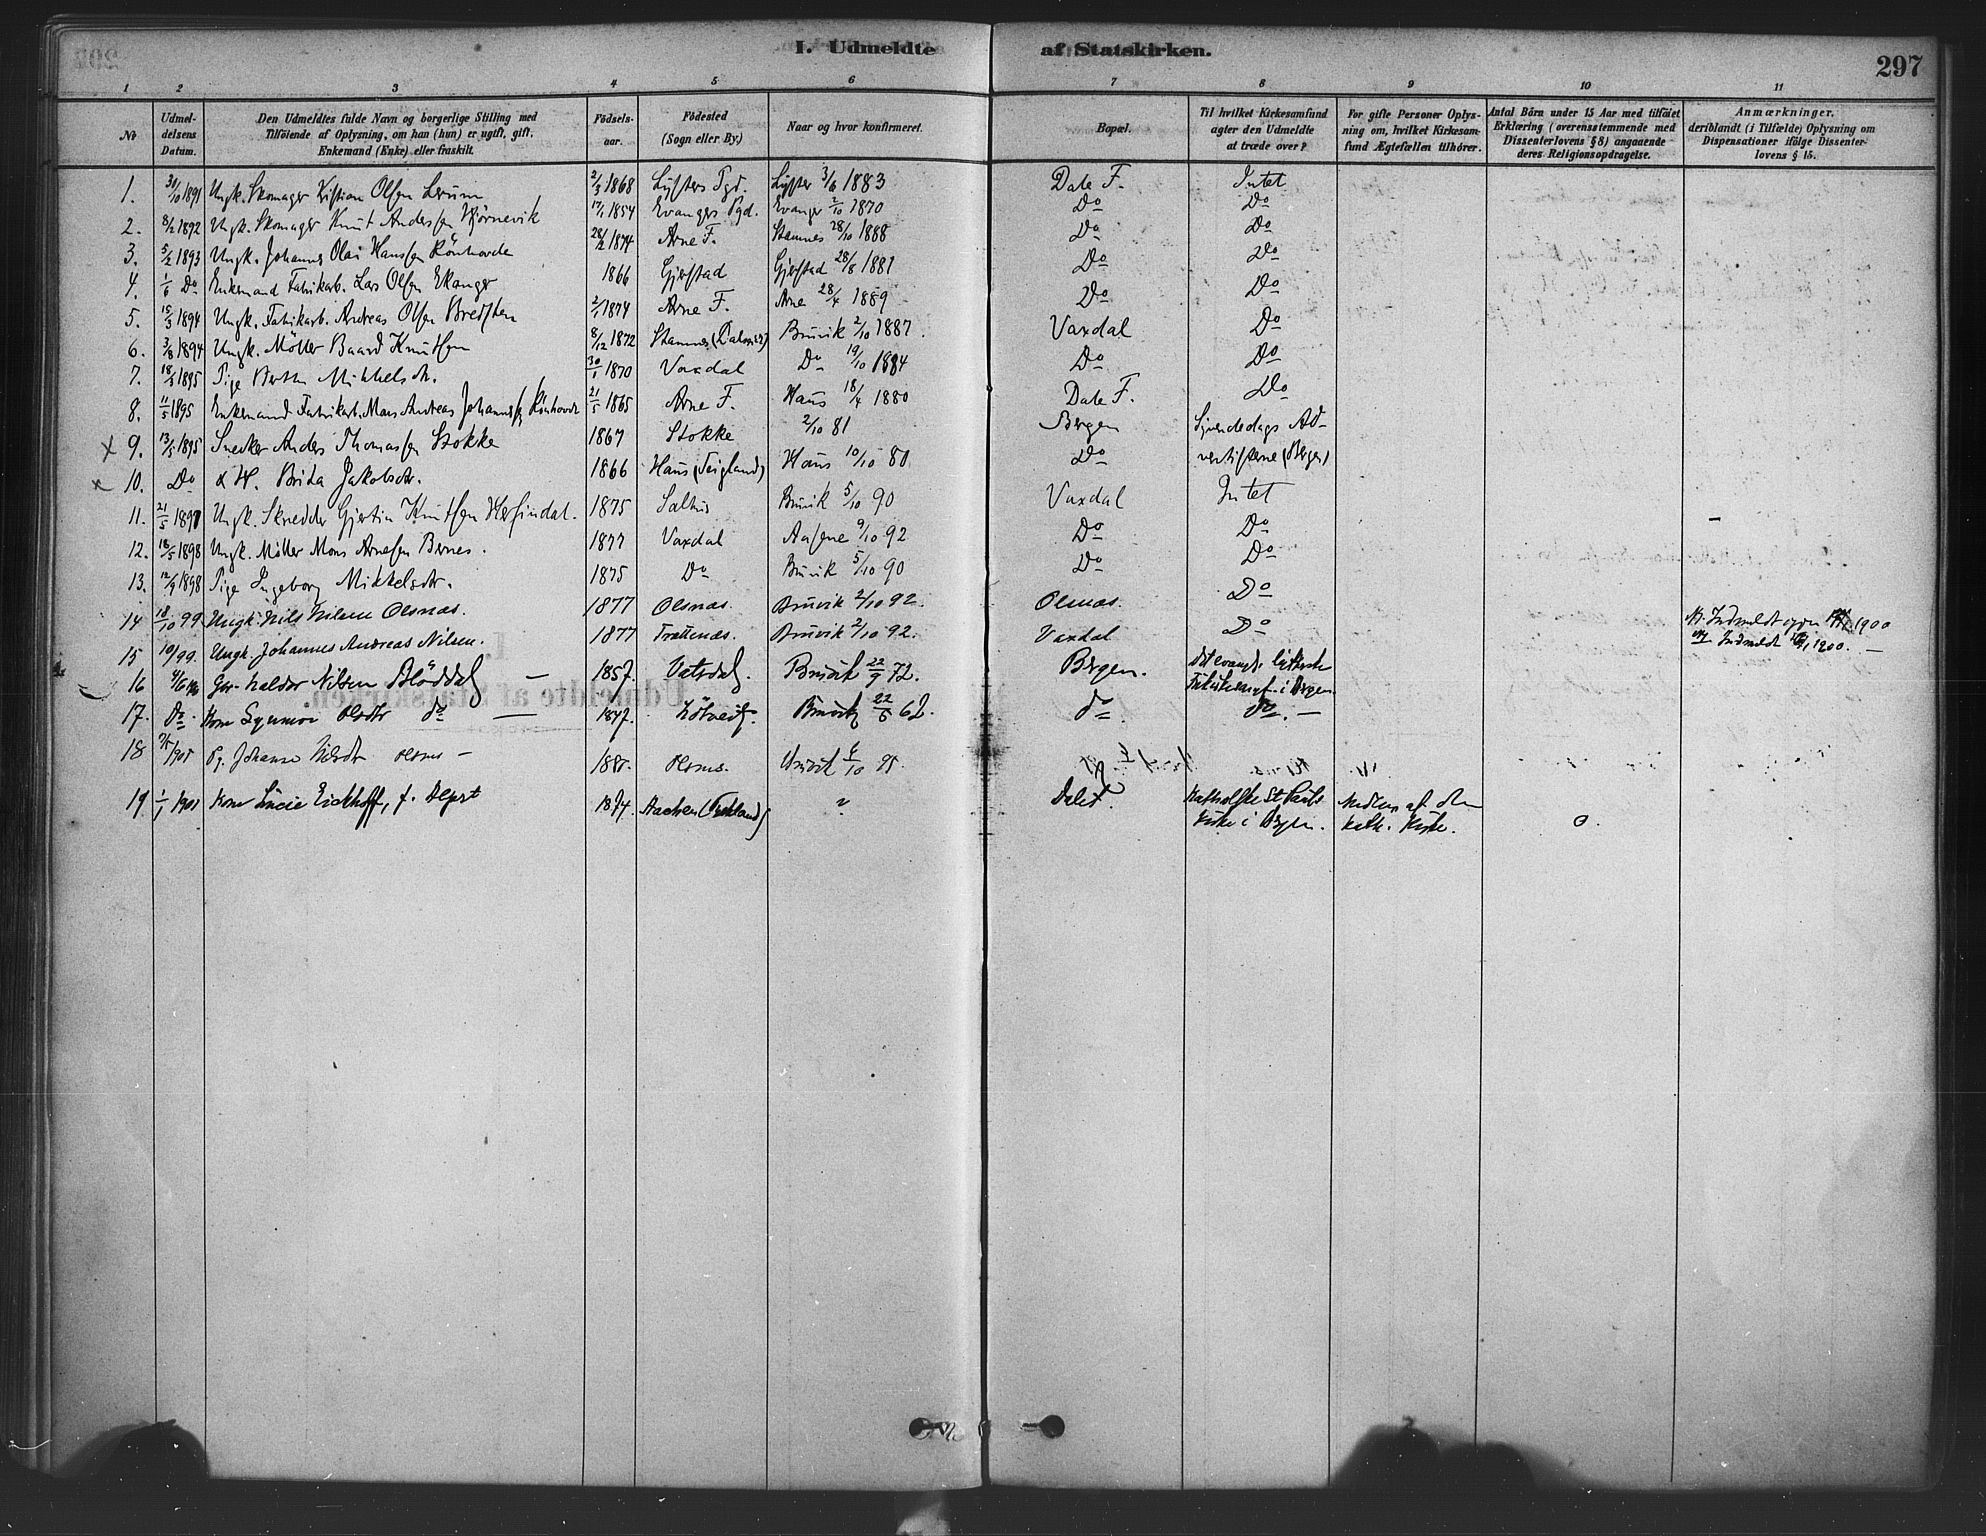 I. Udmeldte af Statskirken. 297
1 2 3 4 5 6 7 8 9 10 11
No
Udmel-
delsens
Datum.
Den Udmeldtes fulde Navn og borgerlige Stilling med
Tilföiende af Oplysning, om han (hun) er ugift, gift,
Enkemand (Enke) eller fraskilt.
Födsels-
aar.
Födested
(Sogn eller By.)
Naar og hvor konfirmeret.
Bopæl.
Til hvilket Kirkesamfund
agter den Udmeldte
at træde over?
For gifte Personer Oplys-
ning om, hvilket Kirkesam-
fund Ægtefællen tilhörer.
Antal Börn under 15 Aar med tilföiet
Erklæring (overensstemmende med
Dissenterlovens § 8) angaaende
deres Religionsopdragelse.
Anmærkninger,
deriblandt (i Tilfælde) Oplysning om
Dispensationer ifölge Dissenter-
lovens § 15.
1. 31/10 1891 Ungk. Skomager Kristian Olsen Lerum 2/3 1868 Lysters Pgd. Lyster 3/6 1883 Dale F. Intet
2. 8/2 1892 Ungk. Skomager Knut Andersen Hjörnevik 17/1 1854 Evangers Pgd. Evanger 2/10 1870 Do Do
3. 5/2 1893 Ungk. Johannes Olai Hansen Rönhovde 28/2 1874 Arne F. Stamnes 28/10 1888 Do Do
4. 1/6 Do Enkemand Fabrikarb. Lars Olsen Ekanger 1866 Gjerstad Gjerstad 28/8 1881 Do Do
5. 15/3 1894 Ungk. Fabrikarb. Andreas Olsen Bredsten 2/1 1874 Arne F. Arne 28/4 1889 Do Do
6. 3/8 1894 Ungk. Möller Baard Knutsen 8/12 1872 Stamnes Bruvik 2/10 1887. Vaxdal Do
7. 18/5 1895 Pige Mikkelsdtr. 30/1 1870 Vaxdal Do 19/10 1884 Do Do
8. 11/5 1895 Enkemand Fabrikarb. Mons Andreas Johannessen Rönhovde 21/5 1865 Arne F. Haus 18/4 1880 Dale F. Do
x 9. 13/5 1895 Snedker Anders Thomassen Stokke 1867 Stokke 2/10 81 Bergen Syvendedags Ad-
x 10. Do & H. Brita Jakobsdtr. 1866 Haus (Teigland) Haus 10/10 80 Do ventisterne (Bergen)
11. 21/5 1897 Ungk. Skredder Gjertin Knutsen Herfindal. 1875 Bruvik 5/10 90 Vaxdal Intet
12. 18/5 1898 Ungk. Möller Mons Arnesen Bernes. 1877 Vaxdal Aasene 9/10 92 Do Do
13. 12/9 1898 Pige Ingeborg Mikkelsdtr. 1875 Do Bruvik 5/10 90 Do Do
14 18/10 99. Ungk. Nils Nilsen Olsnæs. 1877 Olsnæs. Bruvik 2/10 92. Olsnæs. Do Indmeldt 1900
15 99. Ungk. Johannes Andreas Nilsen. 1877 Trættenæs. Bruvik 2/10 92. Vaxdal Do Indmeldt 1900. —
16 Haldor Nilsen Blöddal — 1857. Vatsdal. Bruvik 22/9 72. Bergen. Det evang. lutherske
i Bergen
17. Do. Kone Synneva Olsdtr do — 1847. Bruvik 22/6 62. do. do. —
18 1901 Pg. Johanne Nilsdtr Olsnæs — Olsnæs. Bruvik
19 1/1 1901 Kone Lucie Eickhoff, f. 1874. Aachen (Tydskland) " Dale F. Katholske St Pauls Medlem af den
Kirke i Bergen. kath. Kirke. 0.